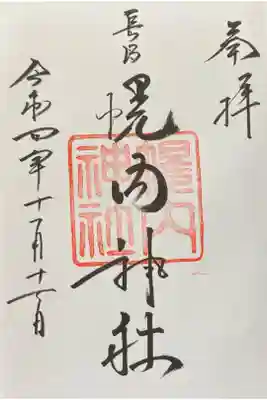 奉拝
長沼
幌内神社
令和四年十一月
幌内
神社